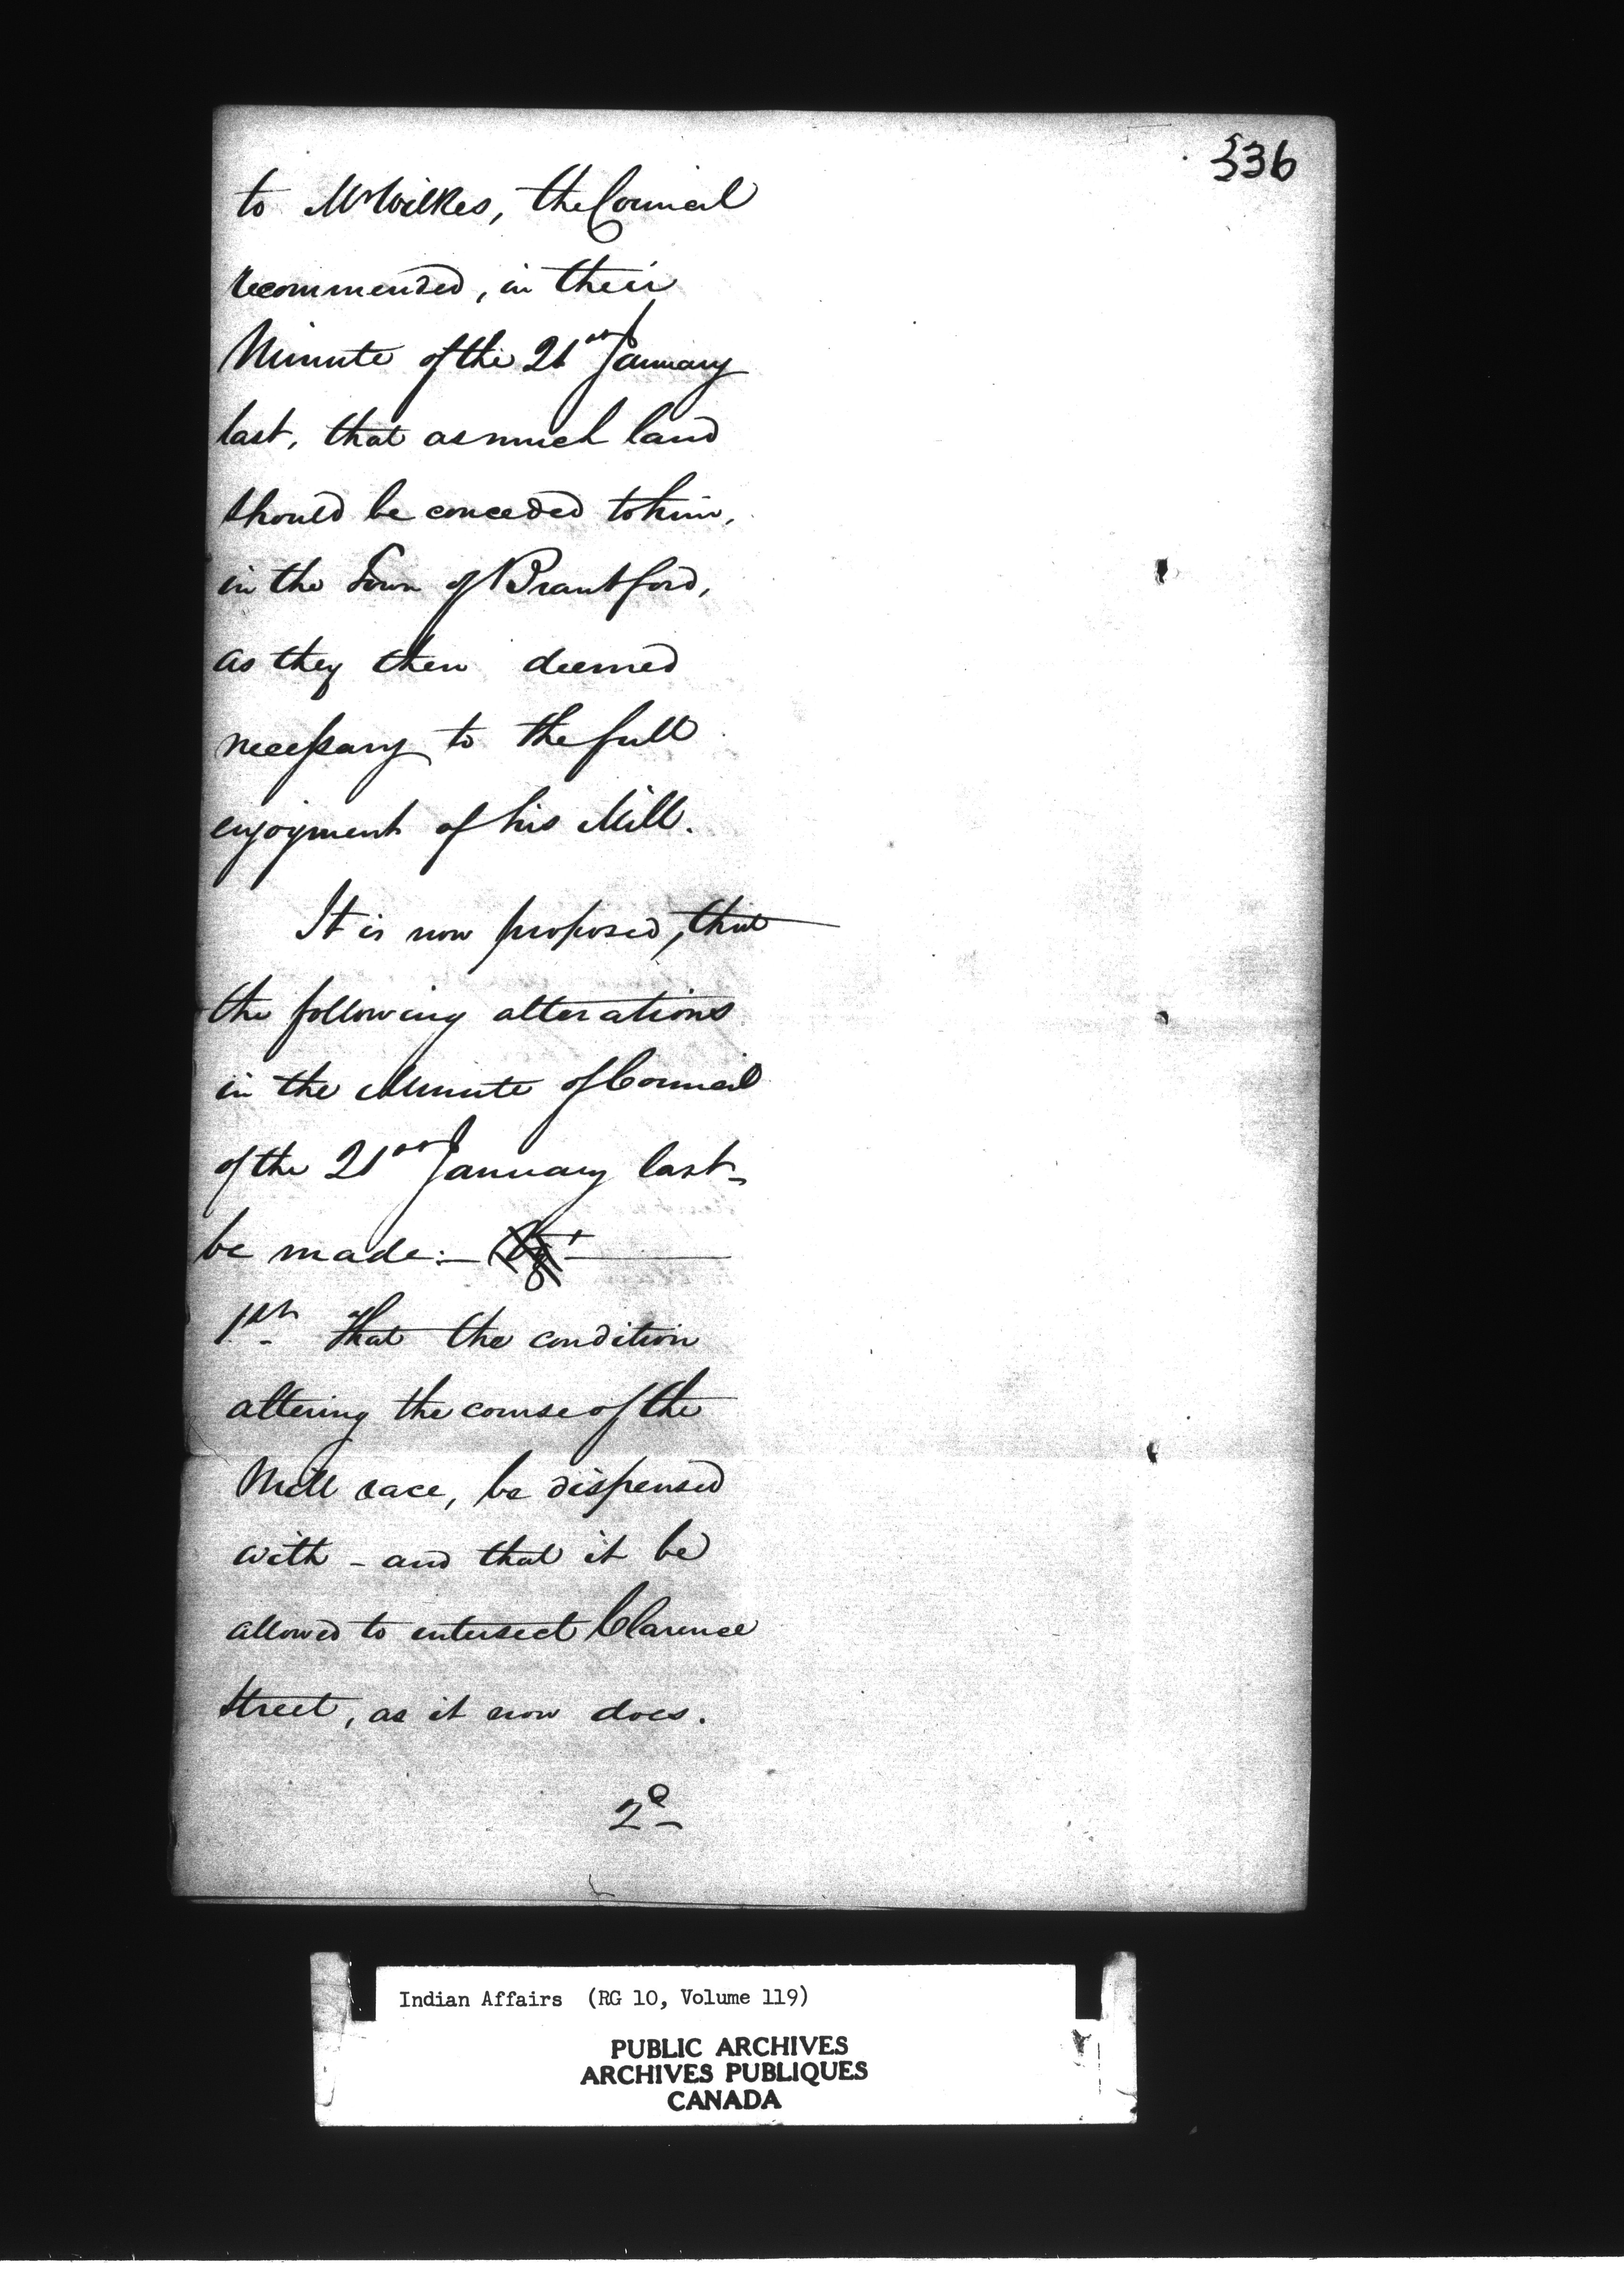 336
to Mr Wilkes, the Council
recommended, in their
Minute of the 21st January
last, that as much land
should be conceded to him,
in the Town of Brantford,
as they then deemed
necessary to the full
enjoyment of his Mill.
It is now proposed, that
the following alterations
in the Minute of Council
of the 21st January last
be made:—
1st That the condition
altering the course of the
Mill race, be dispensed
with - and that it be
allowed to intersect Clarence
Street, as it now does.
2d
Indian Affairs (RG 10, Volume 119)
PUBLIC ARCHIVES
ARCHIVES PUBLIQUES
CANADA